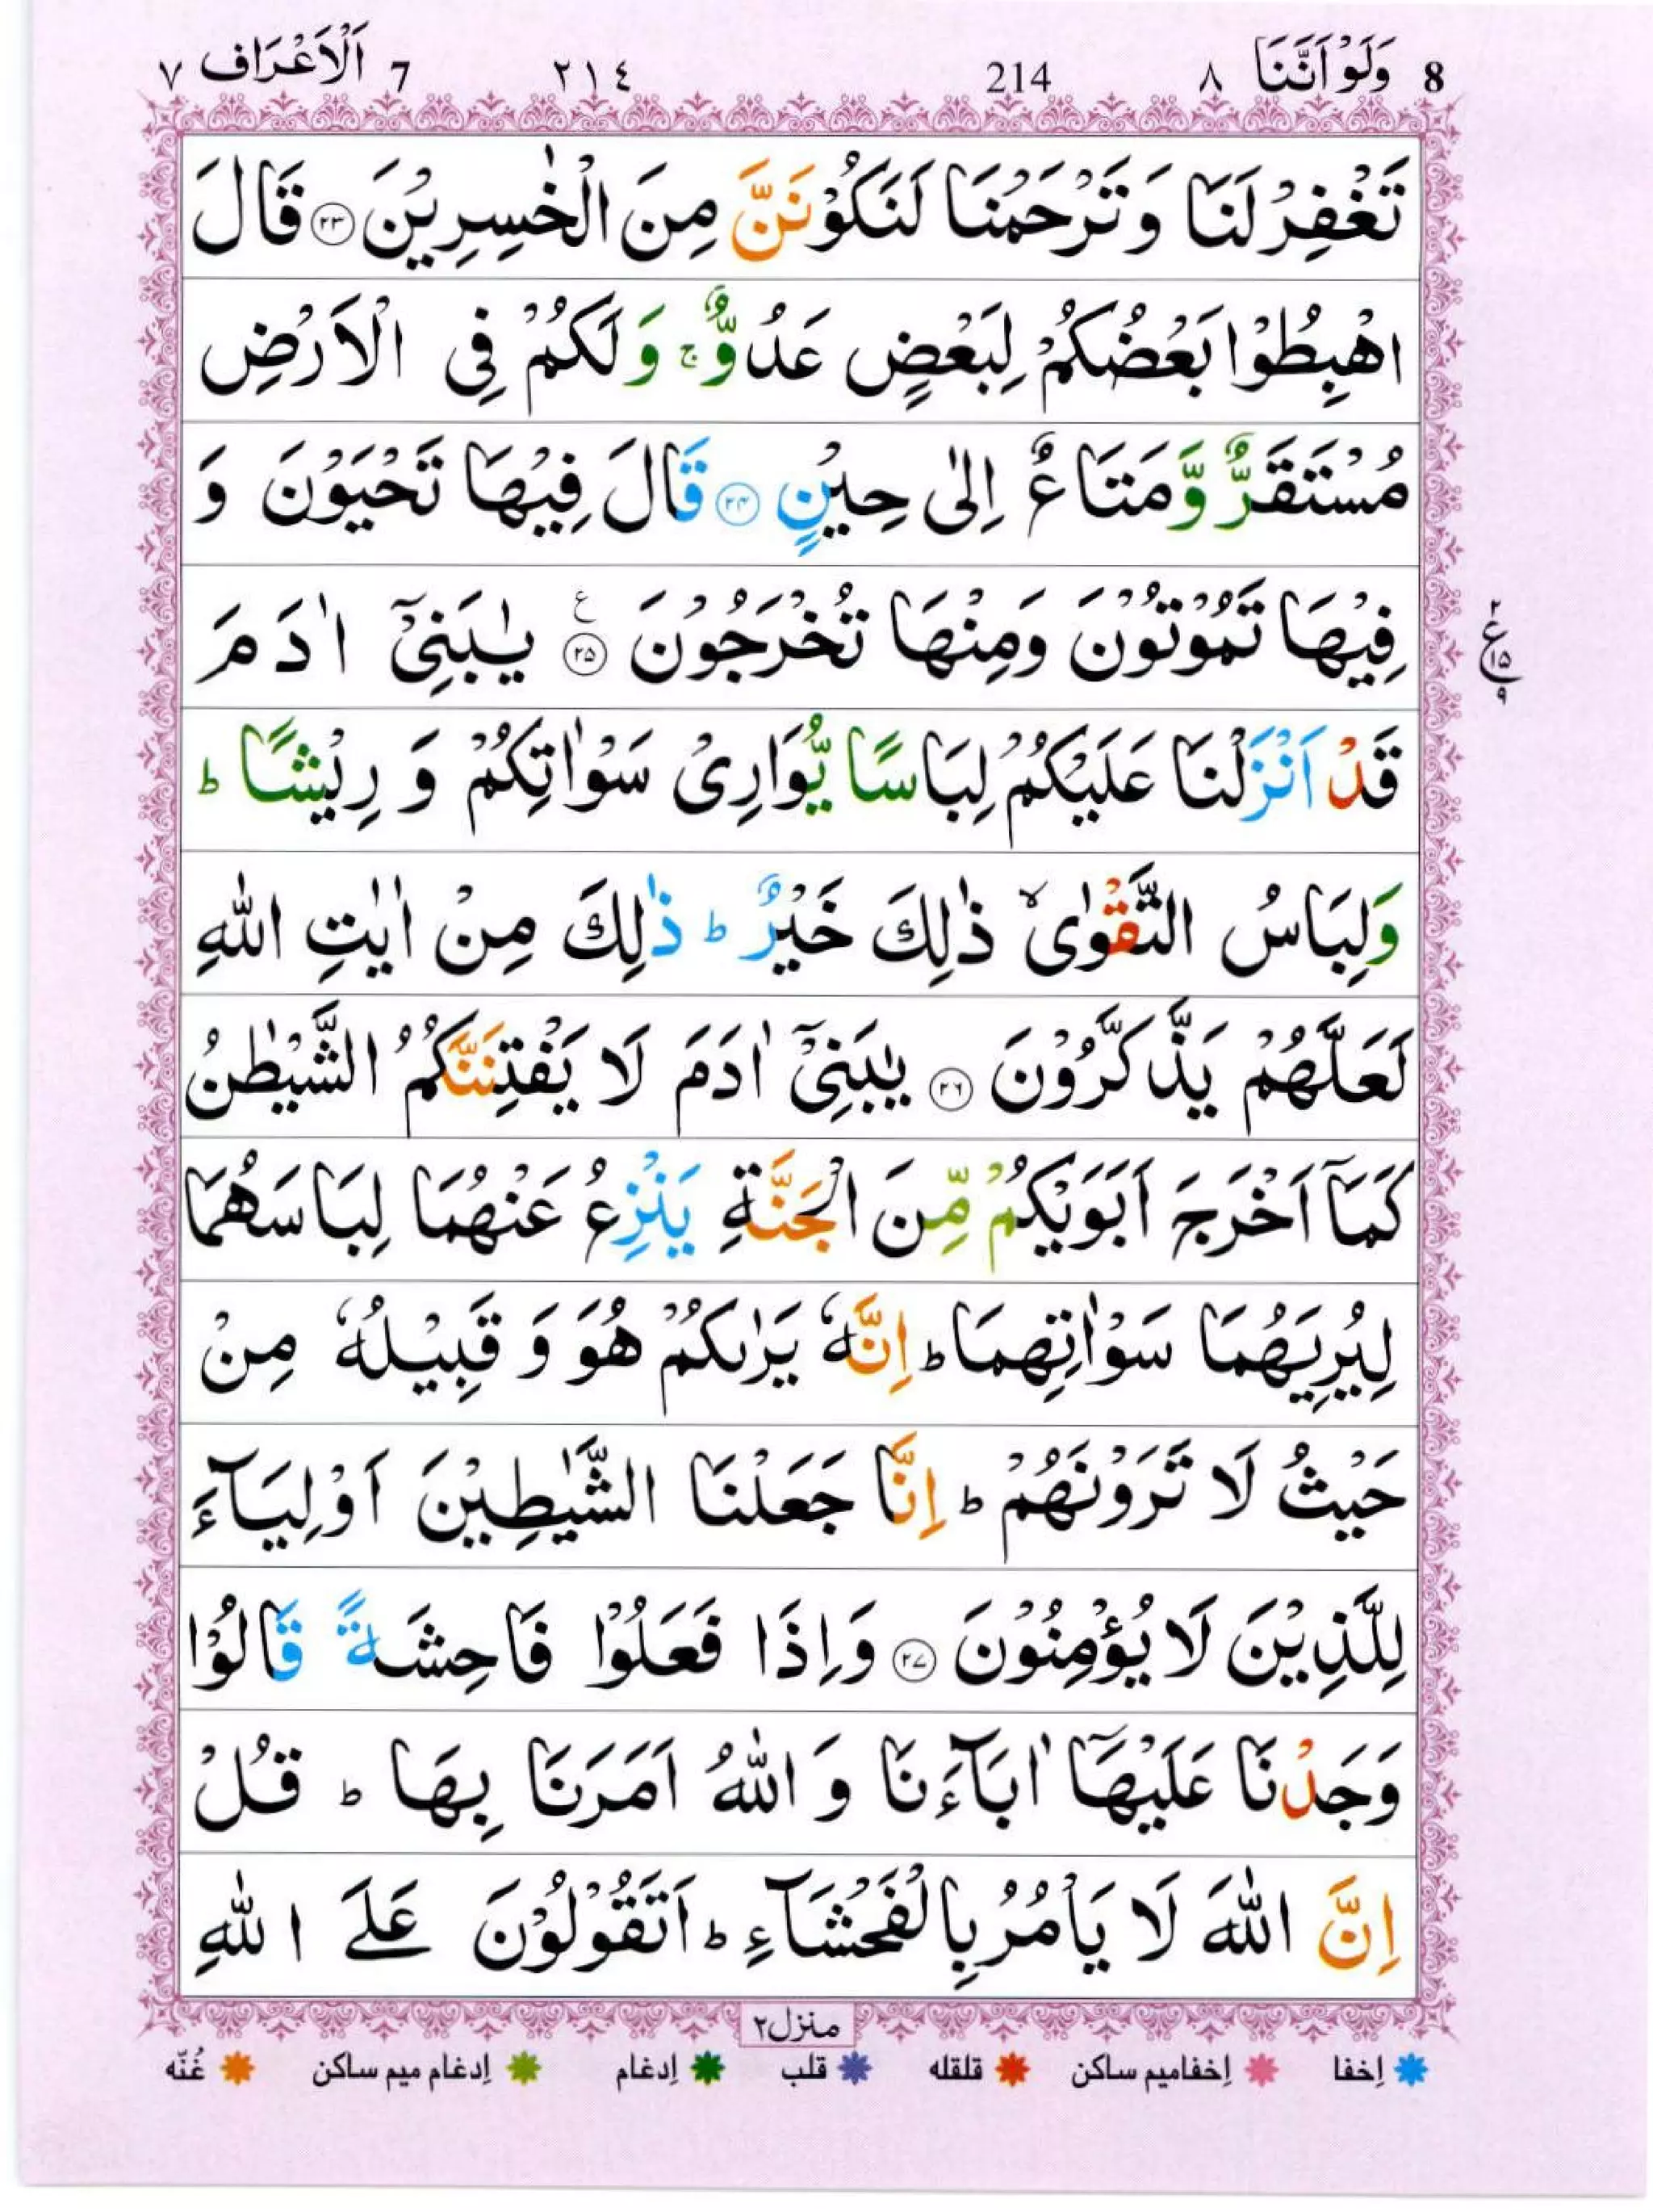 8 وَلَوْ اَنَّنَا ٨ 214 ٢١٤ 7 اَلْاَعْرَاف ٧
تَغْفِرْ لَنَا وَتَرْحَمْنَا لَنَكُوْنَنَّ مِنَ الْخٰسِرِيْنَ ۝۲۳ قَالَ
اهْبِطُوْا بَعْضُكُمْ لِبَعْضٍ عَدُوٌّ ۚ وَلَكُمْ فِى الْاَرْضِ
مُسْتَقَرٌّ وَّمَتَاعٌ اِلٰى حِيْنٍ ۝۲۴ قَالَ فِيْهَا تَحْيَوْنَ وَ
فِيْهَا تَمُوْتُوْنَ وَمِنْهَا تُخْرَجُوْنَ ۝۲۵ ع يٰبَنِىْٓ اٰدَمَ
۲ ع ۱۵ ۹
قَدْ اَنْزَلْنَا عَلَيْكُمْ لِبَاسًا يُّوَارِىْ سَوْاٰتِكُمْ وَ رِيْشًا ؕ
وَلِبَاسُ التَّقْوٰى ۙ ذٰلِكَ خَيْرٌ ؕ ذٰلِكَ مِنْ اٰيٰتِ اللّٰهِ
لَعَلَّهُمْ يَذَّكَّرُوْنَ ۝۲۶ يٰبَنِىْٓ اٰدَمَ لَا يَفْتِنَنَّكُمُ الشَّيْطٰنُ
كَمَآ اَخْرَجَ اَبَوَيْكُمْ مِّنَ الْجَنَّةِ يَنْزِعُ عَنْهُمَا لِبَاسَهُمَا
لِيُرِيَهُمَا سَوْاٰتِهِمَا ؕ اِنَّهٗ يَرٰىكُمْ هُوَ وَ قَبِيْلُهٗ مِنْ
حَيْثُ لَا تَرَوْنَهُمْ ؕ اِنَّا جَعَلْنَا الشَّيٰطِيْنَ اَوْلِيَآءَ
لِلَّذِيْنَ لَا يُؤْمِنُوْنَ ۝۲۷ وَاِذَا فَعَلُوْا فَاحِشَةً قَالُوْا
وَجَدْنَا عَلَيْهَآ اٰبَآءَنَا وَ اللّٰهُ اَمَرَنَا بِهَا ؕ قُلْ
اِنَّ اللّٰهَ لَا يَاْمُرُ بِالْفَحْشَآءِ ؕ اَتَقُوْلُوْنَ عَلَى اللّٰهِ
منزل۲
اِخفا اِخفامیم ساکن قلقله قلب اِدغام اِدغام میم ساکن غُنّه